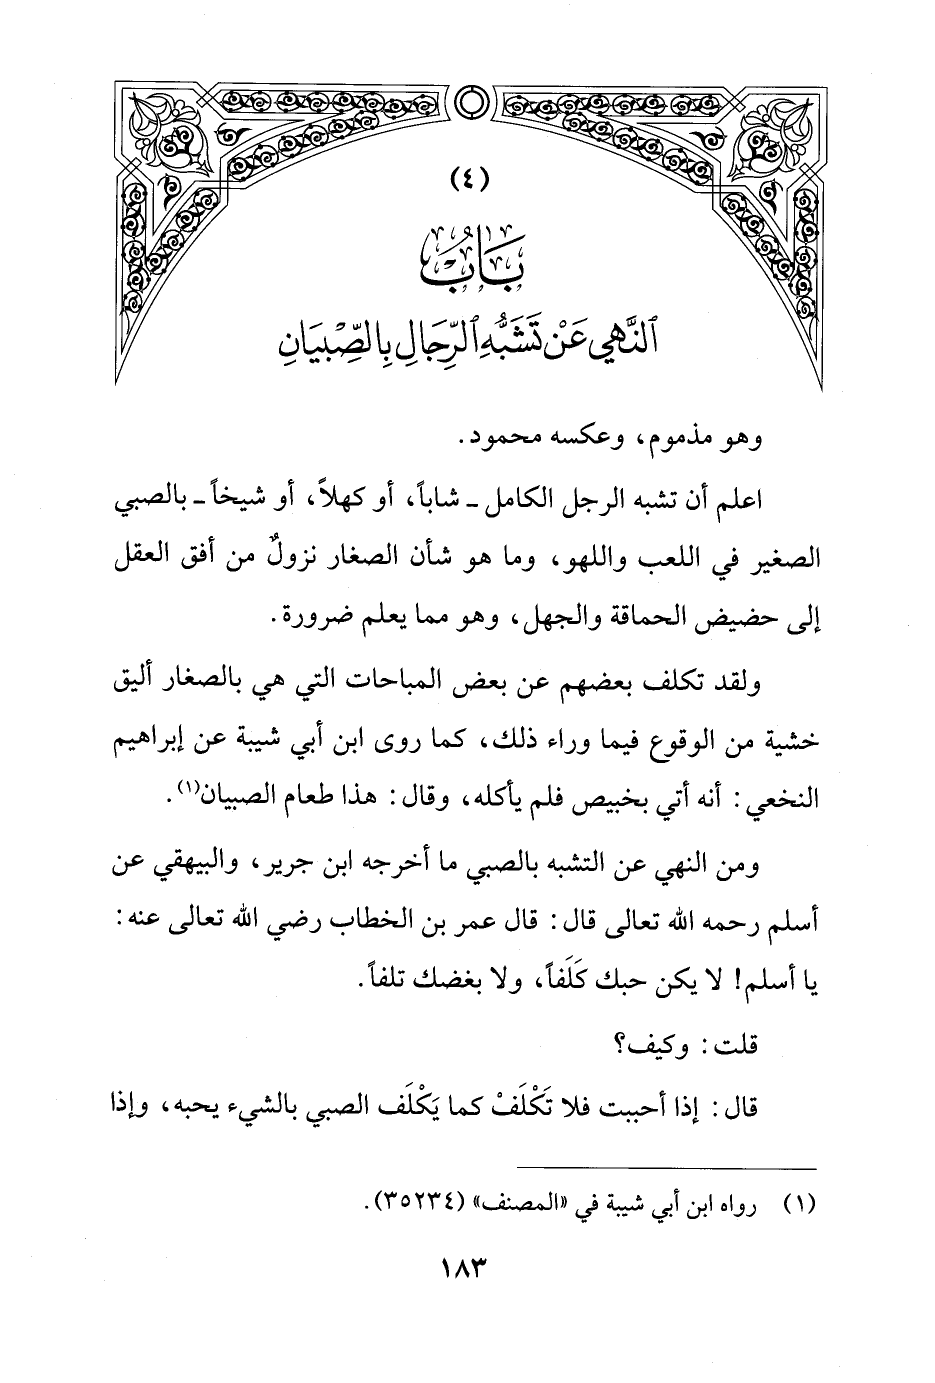 (٤)
بَابُ
النَّهْيِ عَنْ تَشَبُّهِ الرِّجَالِ بِالصِّبْيَانِ
وهو مذموم، وعكسه محمود.
اعلم أن تشبه الرجل الكامل ـ شاباً، أو كهلاً، أو شيخاً ـ بالصبي
الصغير في اللعب واللهو، وما هو شأن الصغار نزولٌ من أفق العقل
إلى حضيض الحماقة والجهل، وهو مما يعلم ضرورة.
ولقد تكلف بعضهم عن بعض المباحات التي هي بالصغار أليق
خشية من الوقوع فيما وراء ذلك، كما روى ابن أبي شيبة عن إبراهيم
النخعي: أنه أتي بخبيص فلم يأكله، وقال: هذا طعام الصبيان(١).
ومن النهي عن التشبه بالصبي ما أخرجه ابن جرير، والبيهقي عن
أسلم رحمه الله تعالى قال: قال عمر بن الخطاب رضي الله تعالى عنه:
يا أسلم! لا يكن حبك كَلَفاً، ولا بغضك تلفاً.
قلت: وكيف؟
قال: إذا أحببت فلا تَكْلَفْ كما يَكْلَف الصبي بالشيء يحبه، وإذا
(١) رواه ابن أبي شيبة في «المصنف» (٣٥٢٣٤).
١٨٣